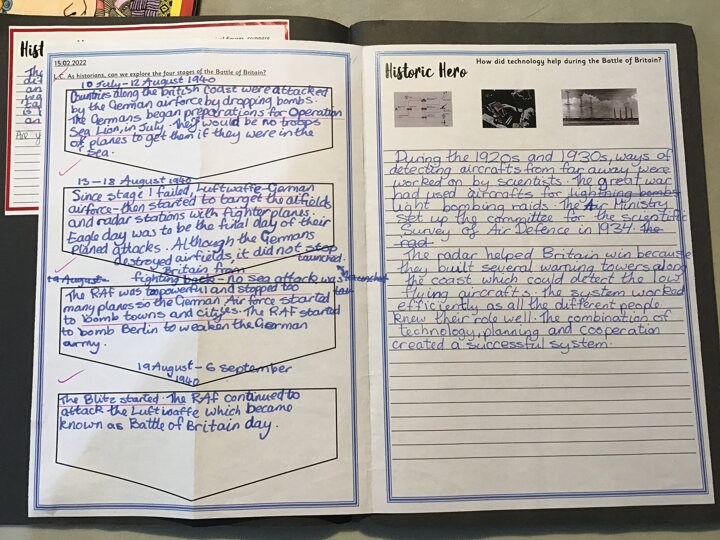 Hist
15.02.2022
L.C. As historians, can we explore the four stages of the Battle of Britain?
10 July - 12 August 1940
Countries along the british coast were attacked
by the German airforce by dropping bombs.
The Germans began preparations for Operation
Sea Lion, in July. They would be no troops
or planes to get them if they were in the
sea.
13 - 18 August 1940
Since stage 1 failed, Luftwaffe-German
airforce-then started to target the airfields
and radar stations with fighter planes.
Eagle day was to be the final day of their
planed attacks. Although the Germans
destroyed airfields, it did not stop
Britain from launched.
19 August- fighting back - no sea attack was
The RAF was too powerful and stopped too
many planes so the German Air force started
to bomb towns and cities. The RAF started
to bomb Berlin to weaken the German
army.
19 August - 6 september
1940
The Blitz started. The RAF continued to
attack the Luftwaffe which became
known as Battle of Britain day.
How did technology help during the Battle of Britain?
Historic Hero
During the 1920s and 1930s, ways of
detecting aircrafts from far away were
worked on by scientists. The great war
had used aircrafts for lightning bombs
light bombing raids. The Air Ministry
set up the committee for the scientific
Survey of Air Defence in 1934. The
rad
The radar helped Britain win because
they built several warning towers along
the coast which could detect the low
flying aircrafts. The system worked
efficiently as all the different people
knew their role well. The combination of
technology, planning and cooperation
created a successful system.